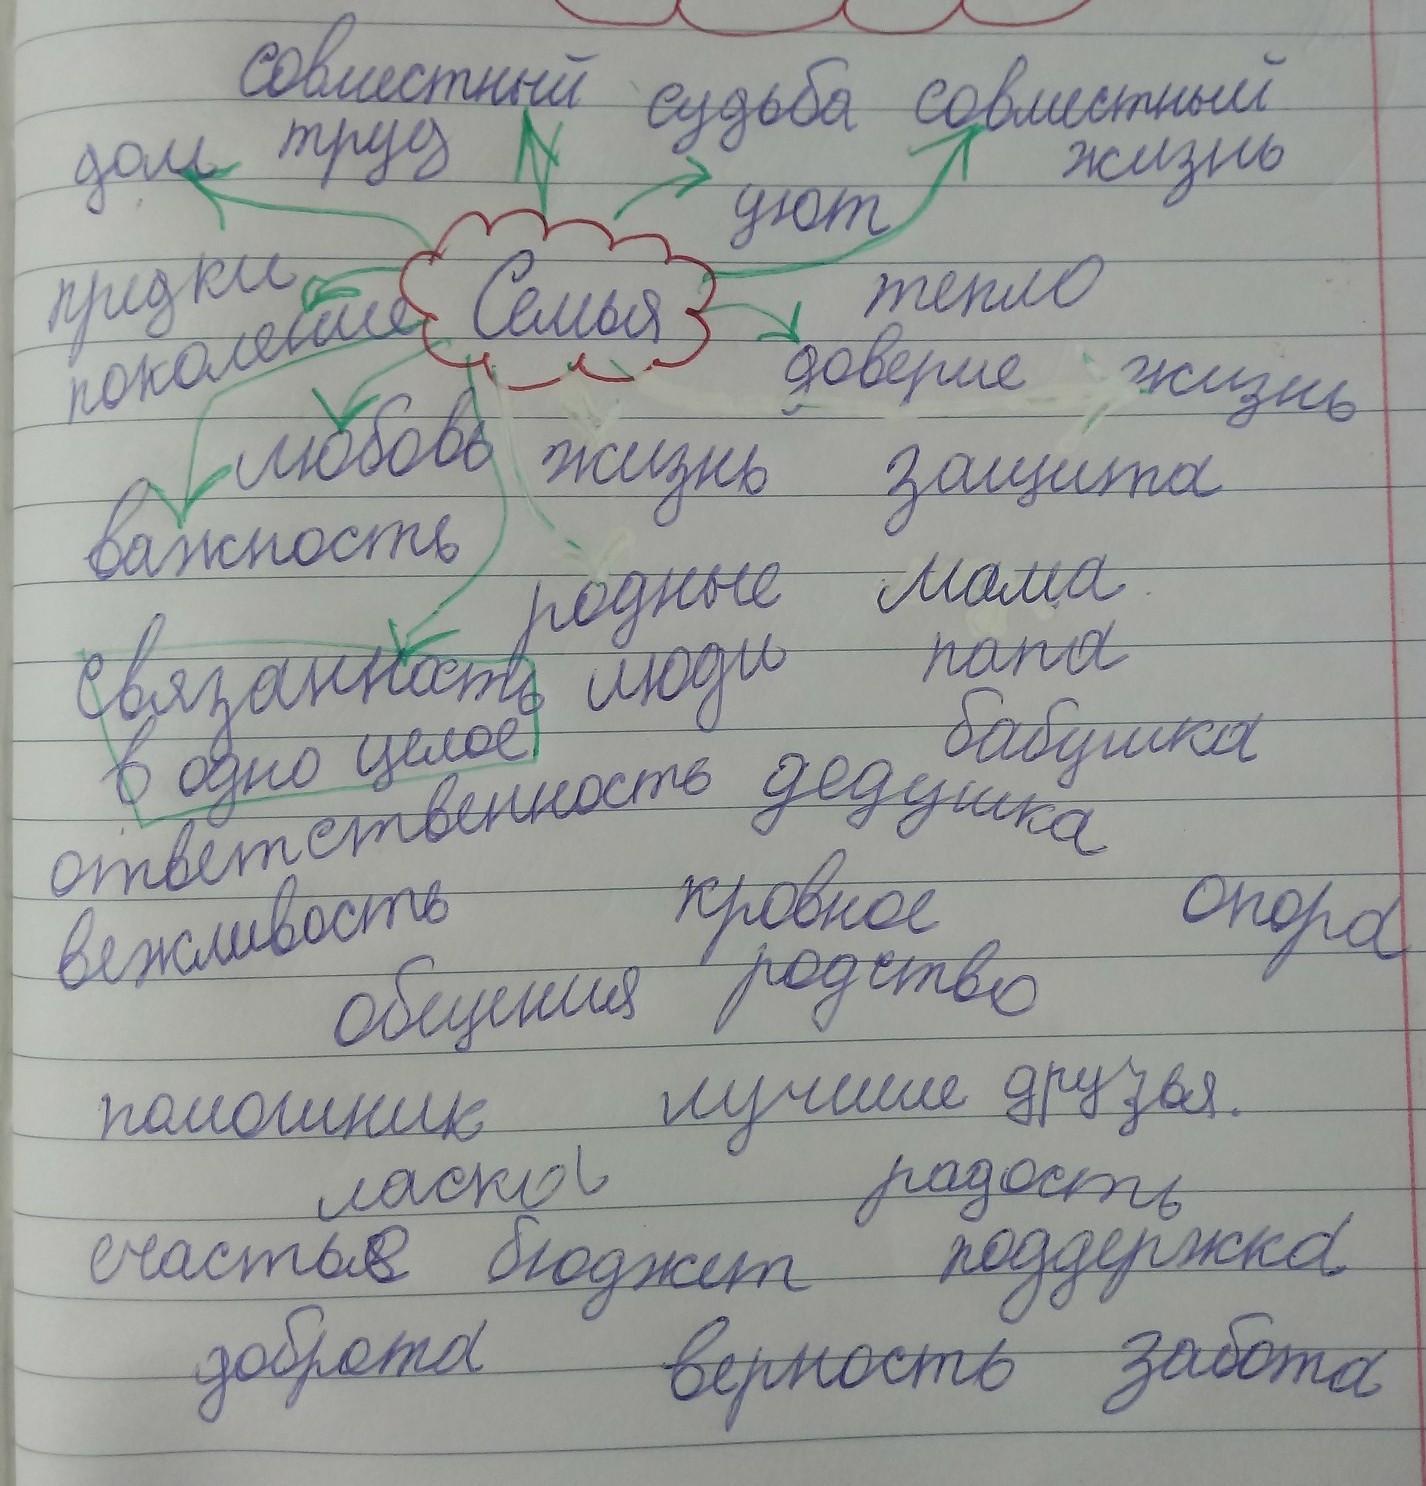 совместный судьба совместный
дом труд жизнь
уют
предки Семья тепло
поколение доверие жизнь
любовь жизнь защита
важность
родные мама
связанность люди папа
в одно целое бабушка
ответственность дедушка
вежливость кровное опора
общения родство
помошник лучшие друзья.
ласка радость
счастье бюджет поддержка
доброта верность забота